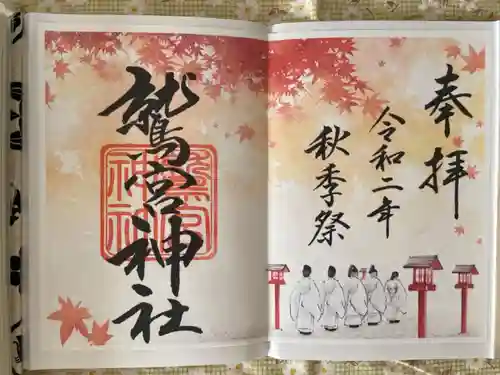 奉拝
令和二年
秋季祭
鷲宮神社